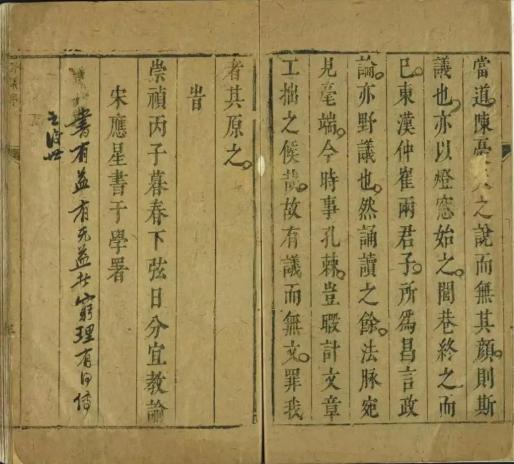 當道。陳憂天之說而無其顏。則斯
議也。亦以燈窓始之。閭巷終之而
已。東漢仲崔兩君子。所爲昌言政
論。亦野議也。然誦讀之餘。法脉宛
見毫端。今時事孔棘。豈暇計文章
工拙之候哉。故有議而無文。罪我
者其原之。
旹
崇禎丙子暮春下弦日分宜教諭
宋應星書于學署
書有益有无益 窮理有